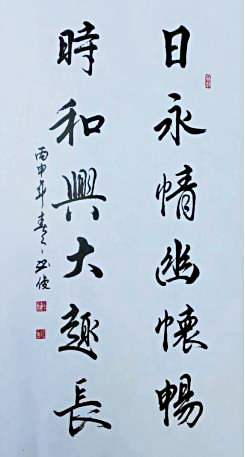 日永情幽懷暢
時和興大趣長
丙申年春之